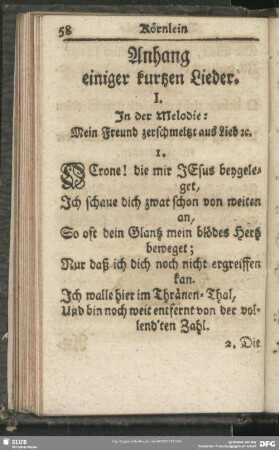 58 Körnlein
Anhang
einiger kurtzen Lieder.
I.
In der Melodie:
Mein Freund zerschmeltzt aus Lieb ꝛc.
1.
O Crone! die mir JEsus beygele-
get,
Ich schaue dich zwar schon von weiten
an,
So oft dein Glantz mein blödes Hertz
beweget;
Nur daß ich dich noch nicht ergreiffen
kan.
Ich walle hier im Thränen-Thal,
Und bin noch weit entfernt von der vol-
lend'ten Zahl.
2. Die
SLUB
DFG